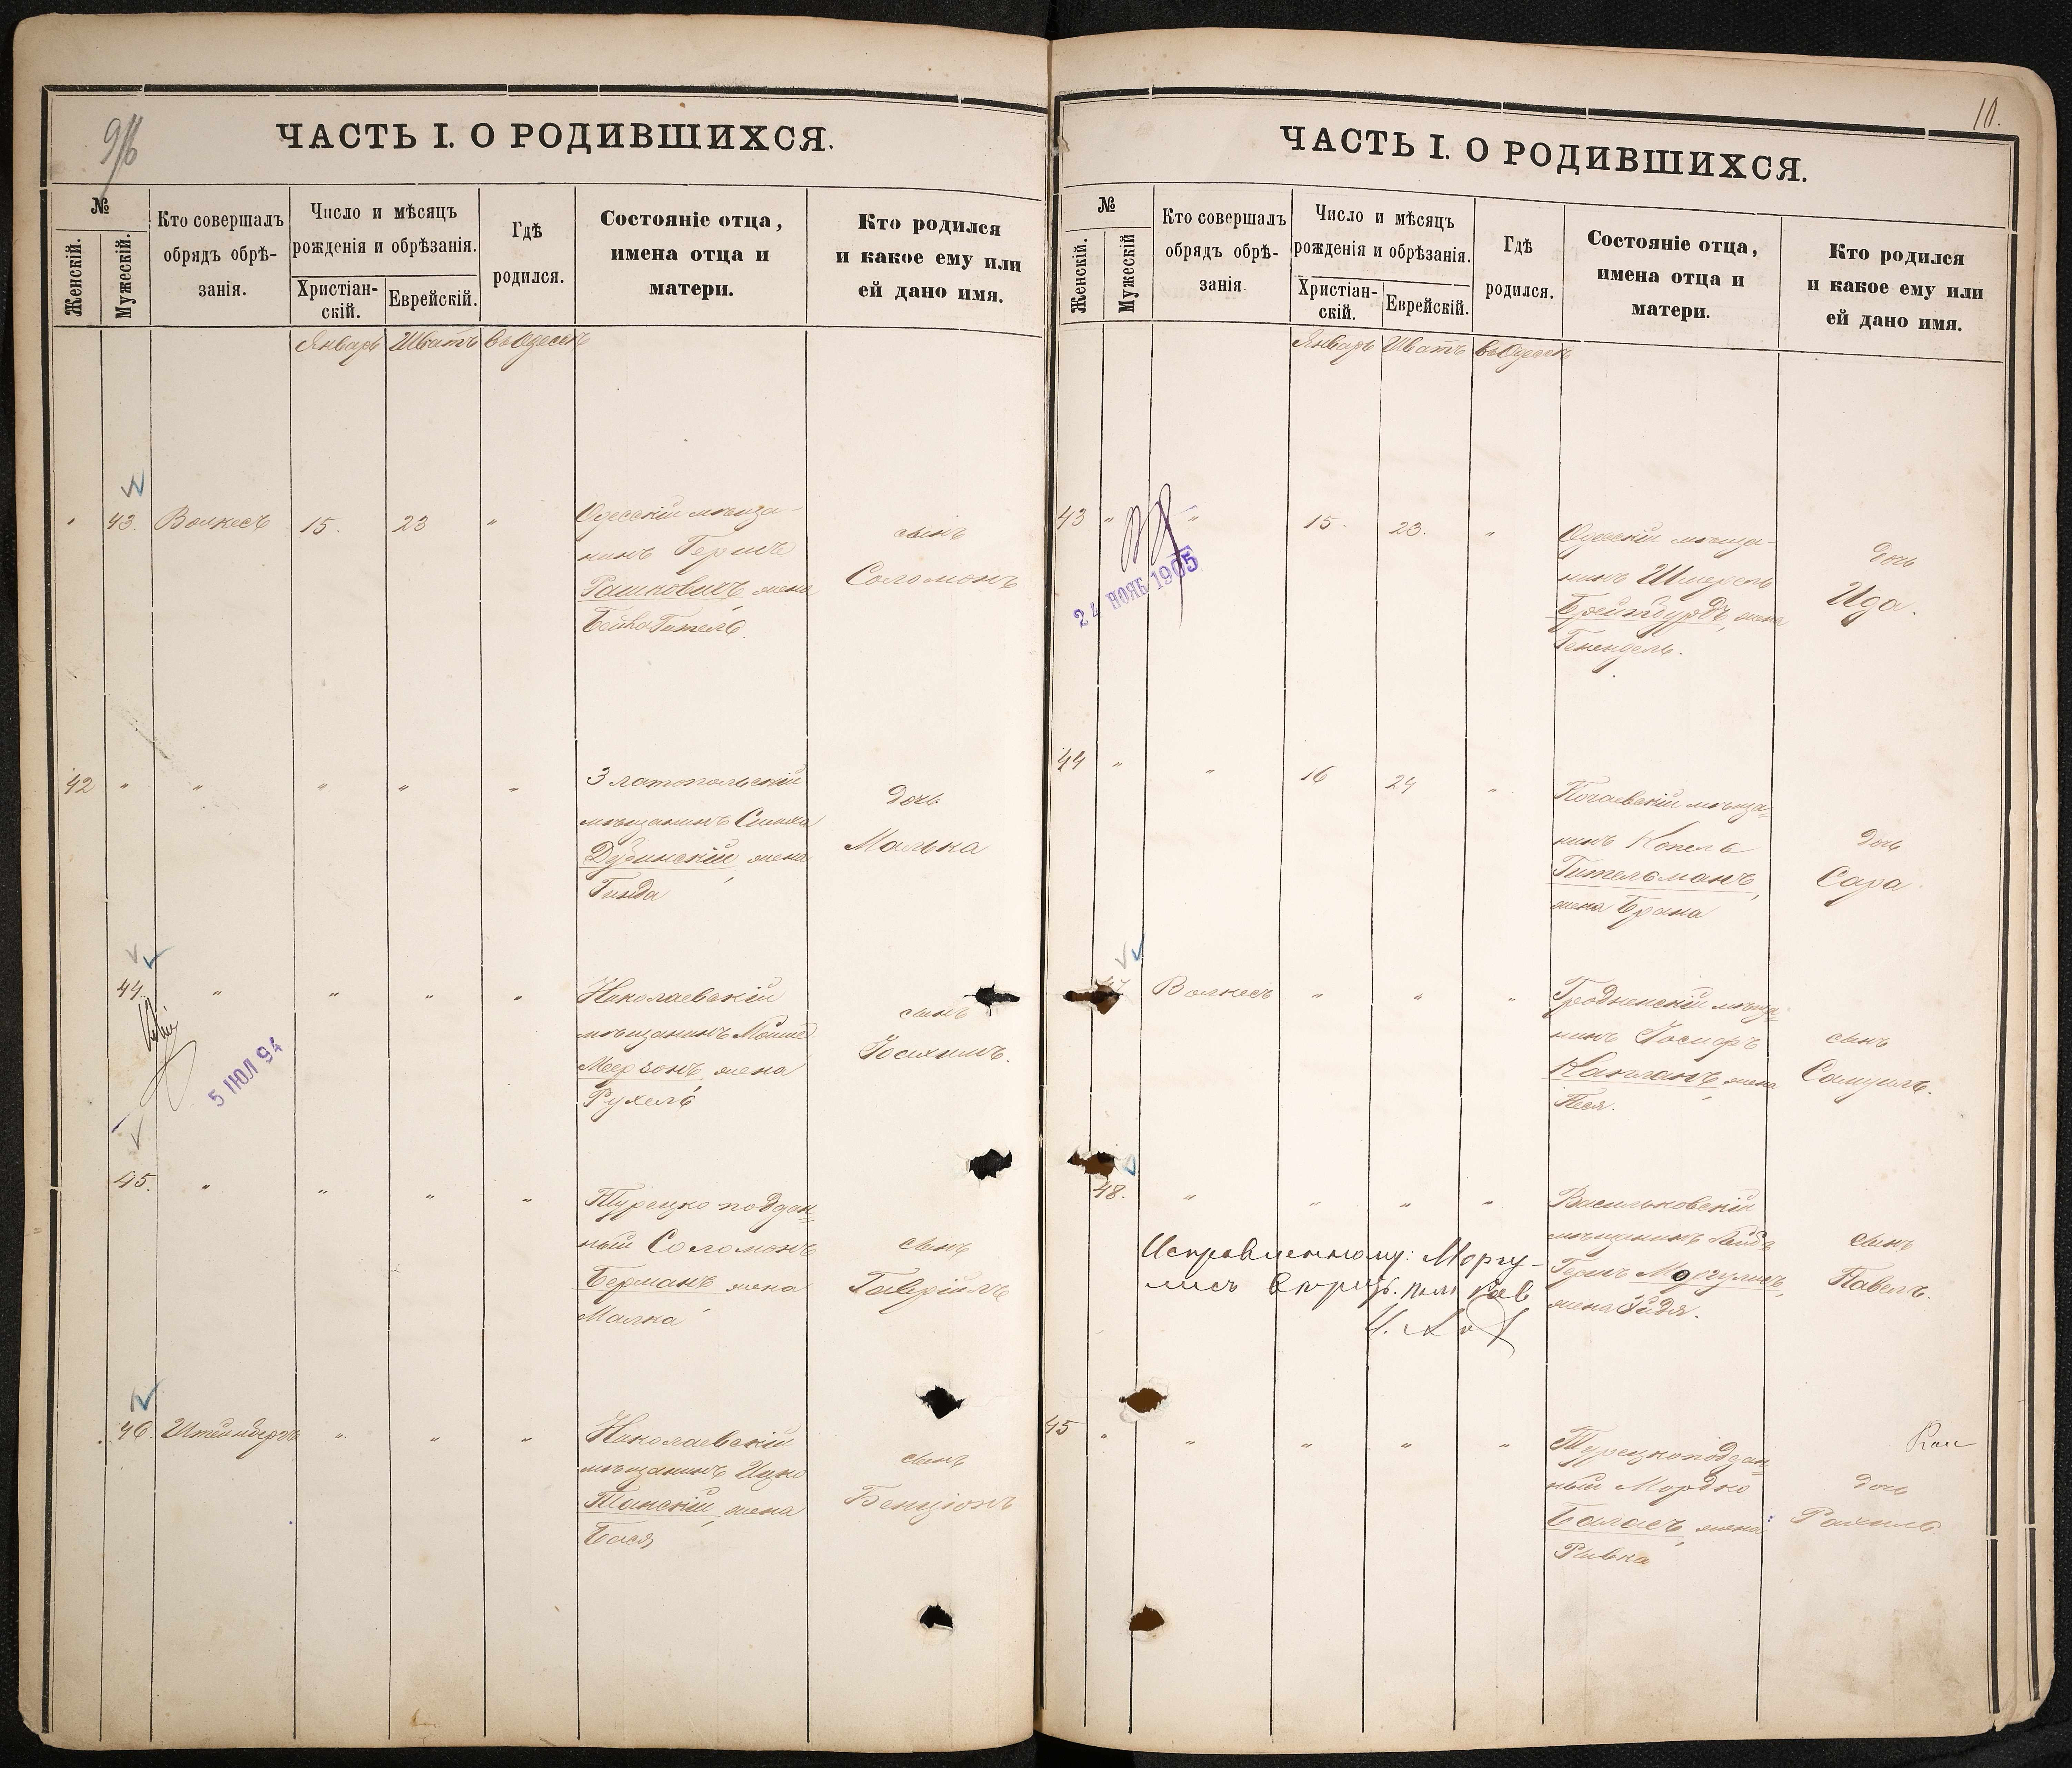 9/б
ЧАСТЬ I. О РОДИВШИХСЯ.
№
Женскій.
Мужескій.
Кто совершалъ
обрядъ обрѣ-
занія.
Число и мѣсяцъ
рожденія и обрѣзанія.
Христіан-
скій.
Еврейскій.
Гдѣ
родился.
Состояніе отца,
имена отца и
матери.
Кто родился
и какое ему или
ей дано имя.
Январь Шватъ въ Одессѣ
43. Волкесъ 15. 23 "
Одесскій мѣща-
нинъ Гершъ
Рашковичъ, жена
Гитель.
сынъ
Соломонъ
42 " " " " "
Златопольскій
мѣщанинъ Симха
Дубинскій, жена
Гинда
дочь
Малька
44. " " " "
Николаевскій
мѣщанинъ Мойше
Мерзонъ, жена
Рухель
сынъ
Іоахимъ.
5 ІЮЛ 94
45. " " " "
Турецко поддан=
ный Соломонъ
Берманъ, жена
Малка
сынъ
Гавріилъ
46. Штейнбергъ " " "
Николаевскій
мѣщанинъ Ицко
Тинскій, жена
Бася
сынъ
Бенціонъ
10.
ЧАСТЬ I. О РОДИВШИХСЯ.
№
Женскій.
Мужескій
Кто совершалъ
обрядъ обрѣ-
занія
Число и мѣсяцъ
рожденія и обрѣзанія.
Христіан-
скій.
Еврейскій.
Гдѣ
родился.
Состояніе отца,
имена отца и
матери.
Кто родился
и какое ему или
ей дано имя.
Январь Шватъ въ Одессѣ
43 " " 15. 23. "
Одесскій мѣща-
нинъ Шмерель
Брейтбурдъ, жена
Генендель.
дочь
Ида.
24 НОЯБ 1905
44 " " 16 24 "
Почаевскій мѣща=
нинъ Копель
Гительманъ,
жена Брана
дочь
Сара
47 Волкесъ " " "
Гродненскій мѣща=
нинъ Іосифъ
Капланъ, жена
Песя.
сынъ
Самуилъ.
48. " " " "
Васильковскій
мѣщанинъ Лейб
Гершъ Моргулисъ,
жена Хайдя.
сынъ
Павелъ.
Исправленному: Моргу-
лисъ
45 " " " " "
Турецкоподдан=
ный Мордко
Баласъ, жена
Ривка
дочь
Рахиль